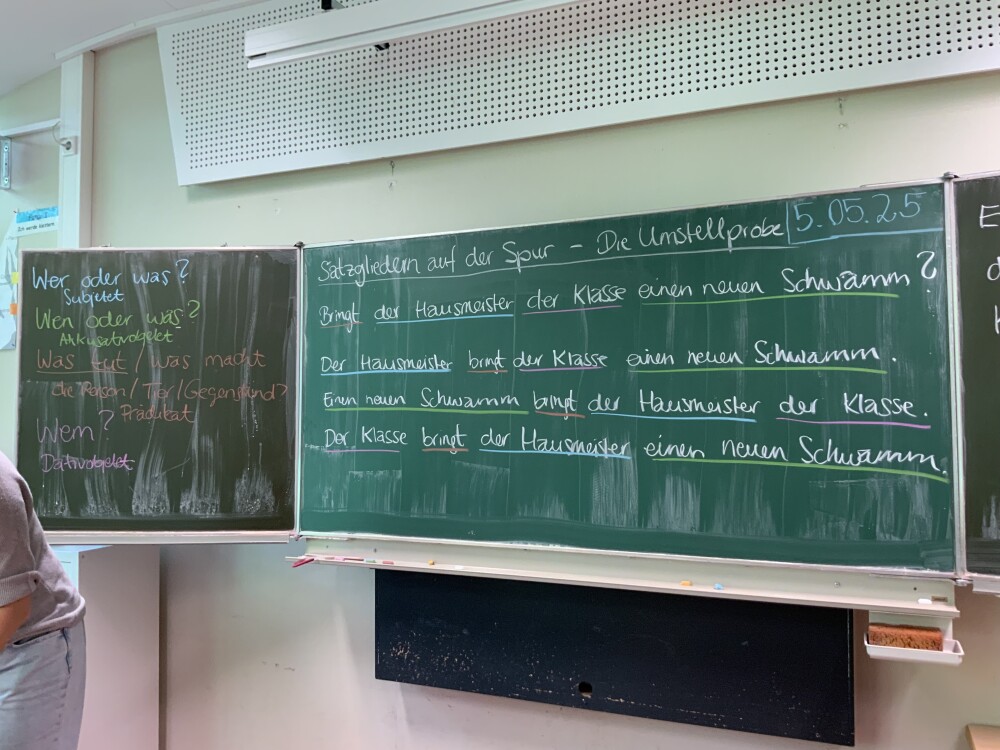 Wer oder was?
Subjetet
Wen oder was?
Akkusativobjekt
Was tut / was macht
die Person / Tier / Gegenstand?
Prädikat
Wem?
Dativobjekt
Satzgliedern auf der Spur - Die Umstellprobe
5.05.25
Bringt der Hausmeister der Klasse einen neuen Schwamm?
Der Hausmeister bringt der Klasse einen neuen Schwamm.
Einen neuen Schwamm bringt der Hausmeister der Klasse.
Der Klasse bringt der Hausmeister einen neuen Schwamm.
E
d